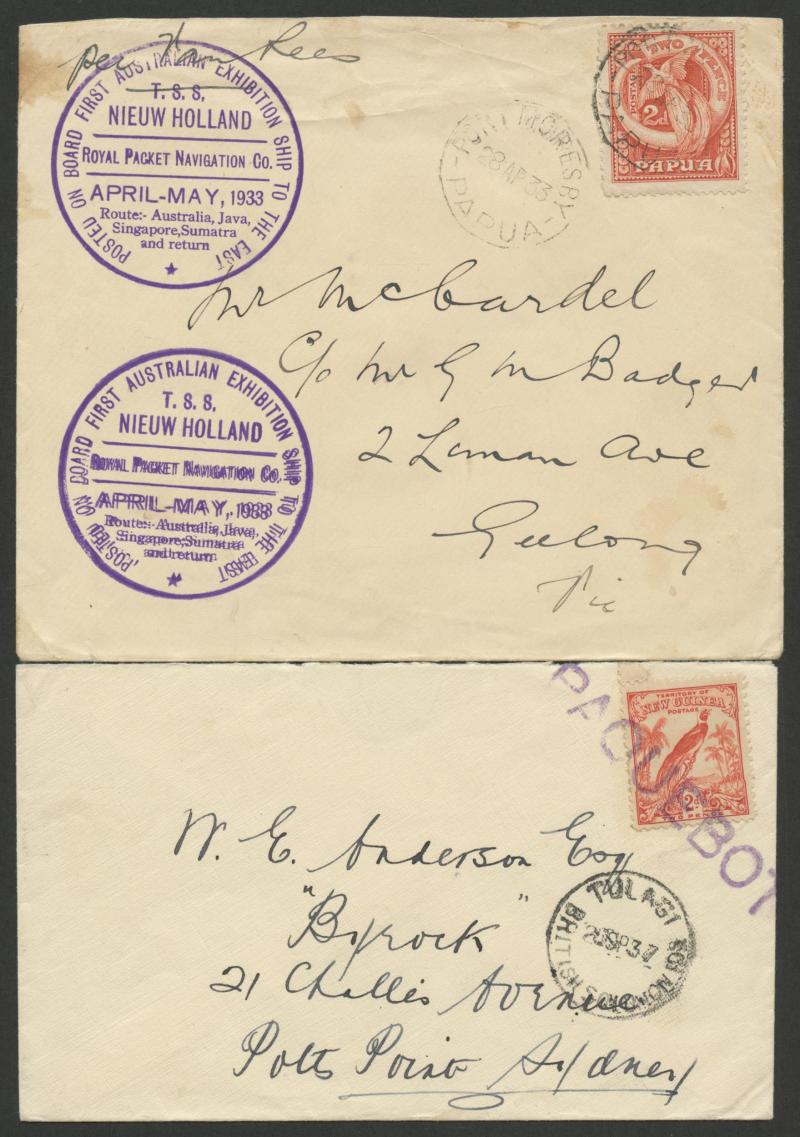 per Van Rees
POSTED ON BOARD FIRST AUSTRALIAN EXHIBITION SHIP TO THE EAST
T.S.S.
NIEUW HOLLAND
ROYAL PACKET NAVIGATION CO.
APRIL-MAY, 1933
Route:- Australia, Java,
Singapore, Sumatra
and return
PORT MORESBY
28 AP 33
PAPUA
POSTAGE
TWO PENCE
2d
PAPUA
Mr McCardel
C/o Mr G M Badger
2 Loman Ave
Geelong
Vic
POSTED ON BOARD FIRST AUSTRALIAN EXHIBITION SHIP TO THE EAST
T.S.S.
NIEUW HOLLAND
ROYAL PACKET NAVIGATION CO.
APRIL-MAY, 1933
Route:- Australia, Java,
Singapore, Sumatra
and return
PAQUEBOT
TERRITORY OF
NEW GUINEA
POSTAGE
2d
W. E. Anderson Esq
"Byrock"
21 Challis Avenue
Potts Point Sydney
TULAGI
SP 37
BRITISH SOLOMON IDS